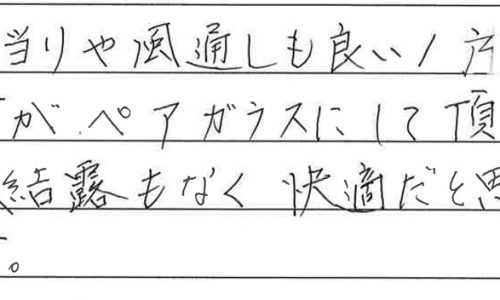 当りや風通しも良い!方
が、ペアガラスにして頂
結露もなく快適だと思
。